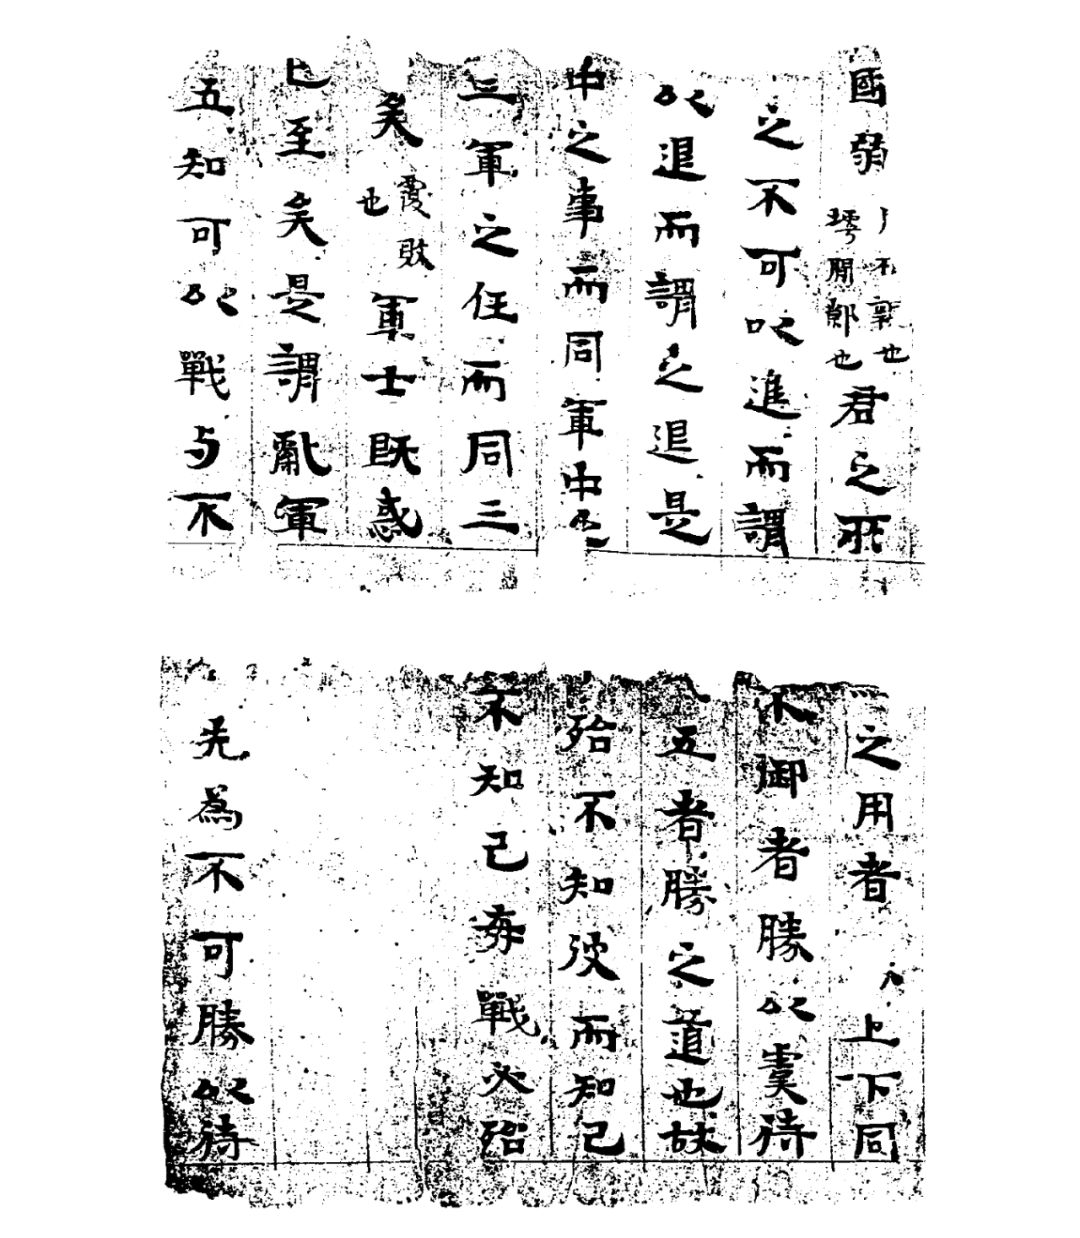 國弱 不也 也 君之所
之不可以進而謂
以退而謂之退是
中之事而同軍中之
三軍之任而同三
矣 覆敗也 軍士既惑
已至矣是謂亂軍
五知可以戰与不
之用者 上下同
不御者勝以虞待
五者勝之道也故
殆不知彼而知己
不知己每戰必殆
先為不可勝以待